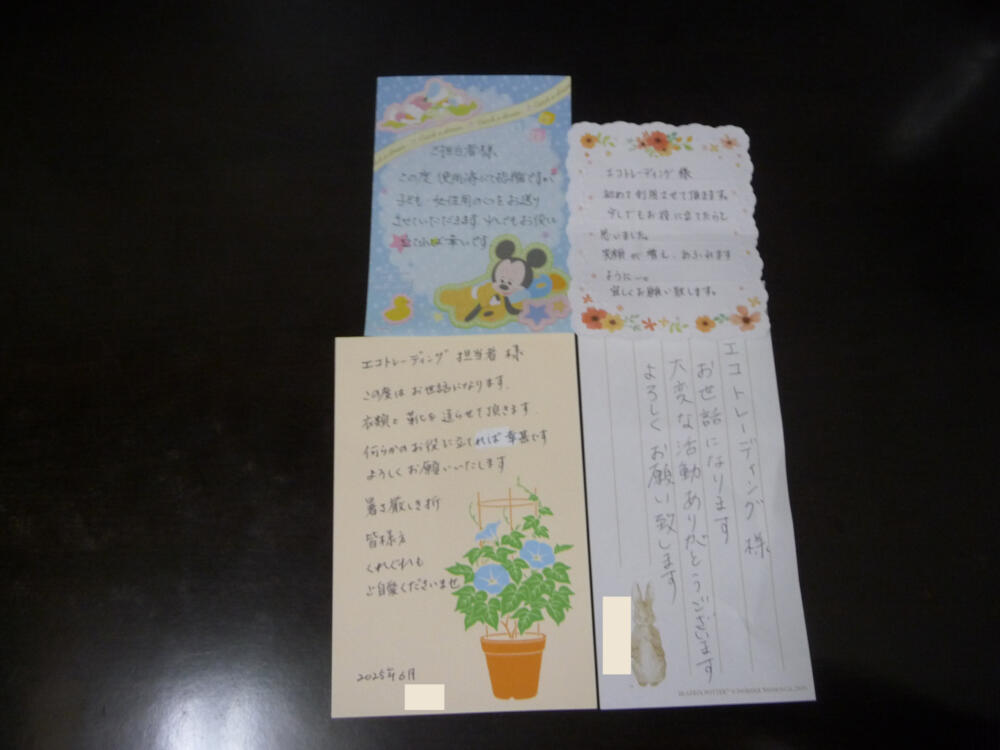 ご担当者様
この度 使用済みで恐縮ですが
子ども・女性用の
をお送り
させていただきます 少しでもお役に
立てれば幸いです
エコトレーディング 様
初めて利用させて頂きます。
少しでもお役に立てたらと
思いました。
笑顔が増し、あふれます
ように…。
宜しくお願い致します。
エコトレーディング 担当者 様
この度は お世話になります。
衣類と 靴を 送らせて頂きます。
何らかのお役に立てれば 幸甚です
よろしく お願いいたします
暑さ厳しき折
皆様方
くれぐれも
ご自愛くださいませ
2025年6月
エコトレーディング 様
お世話になります
大変な活動ありがとうございます
よろしくお願い致します